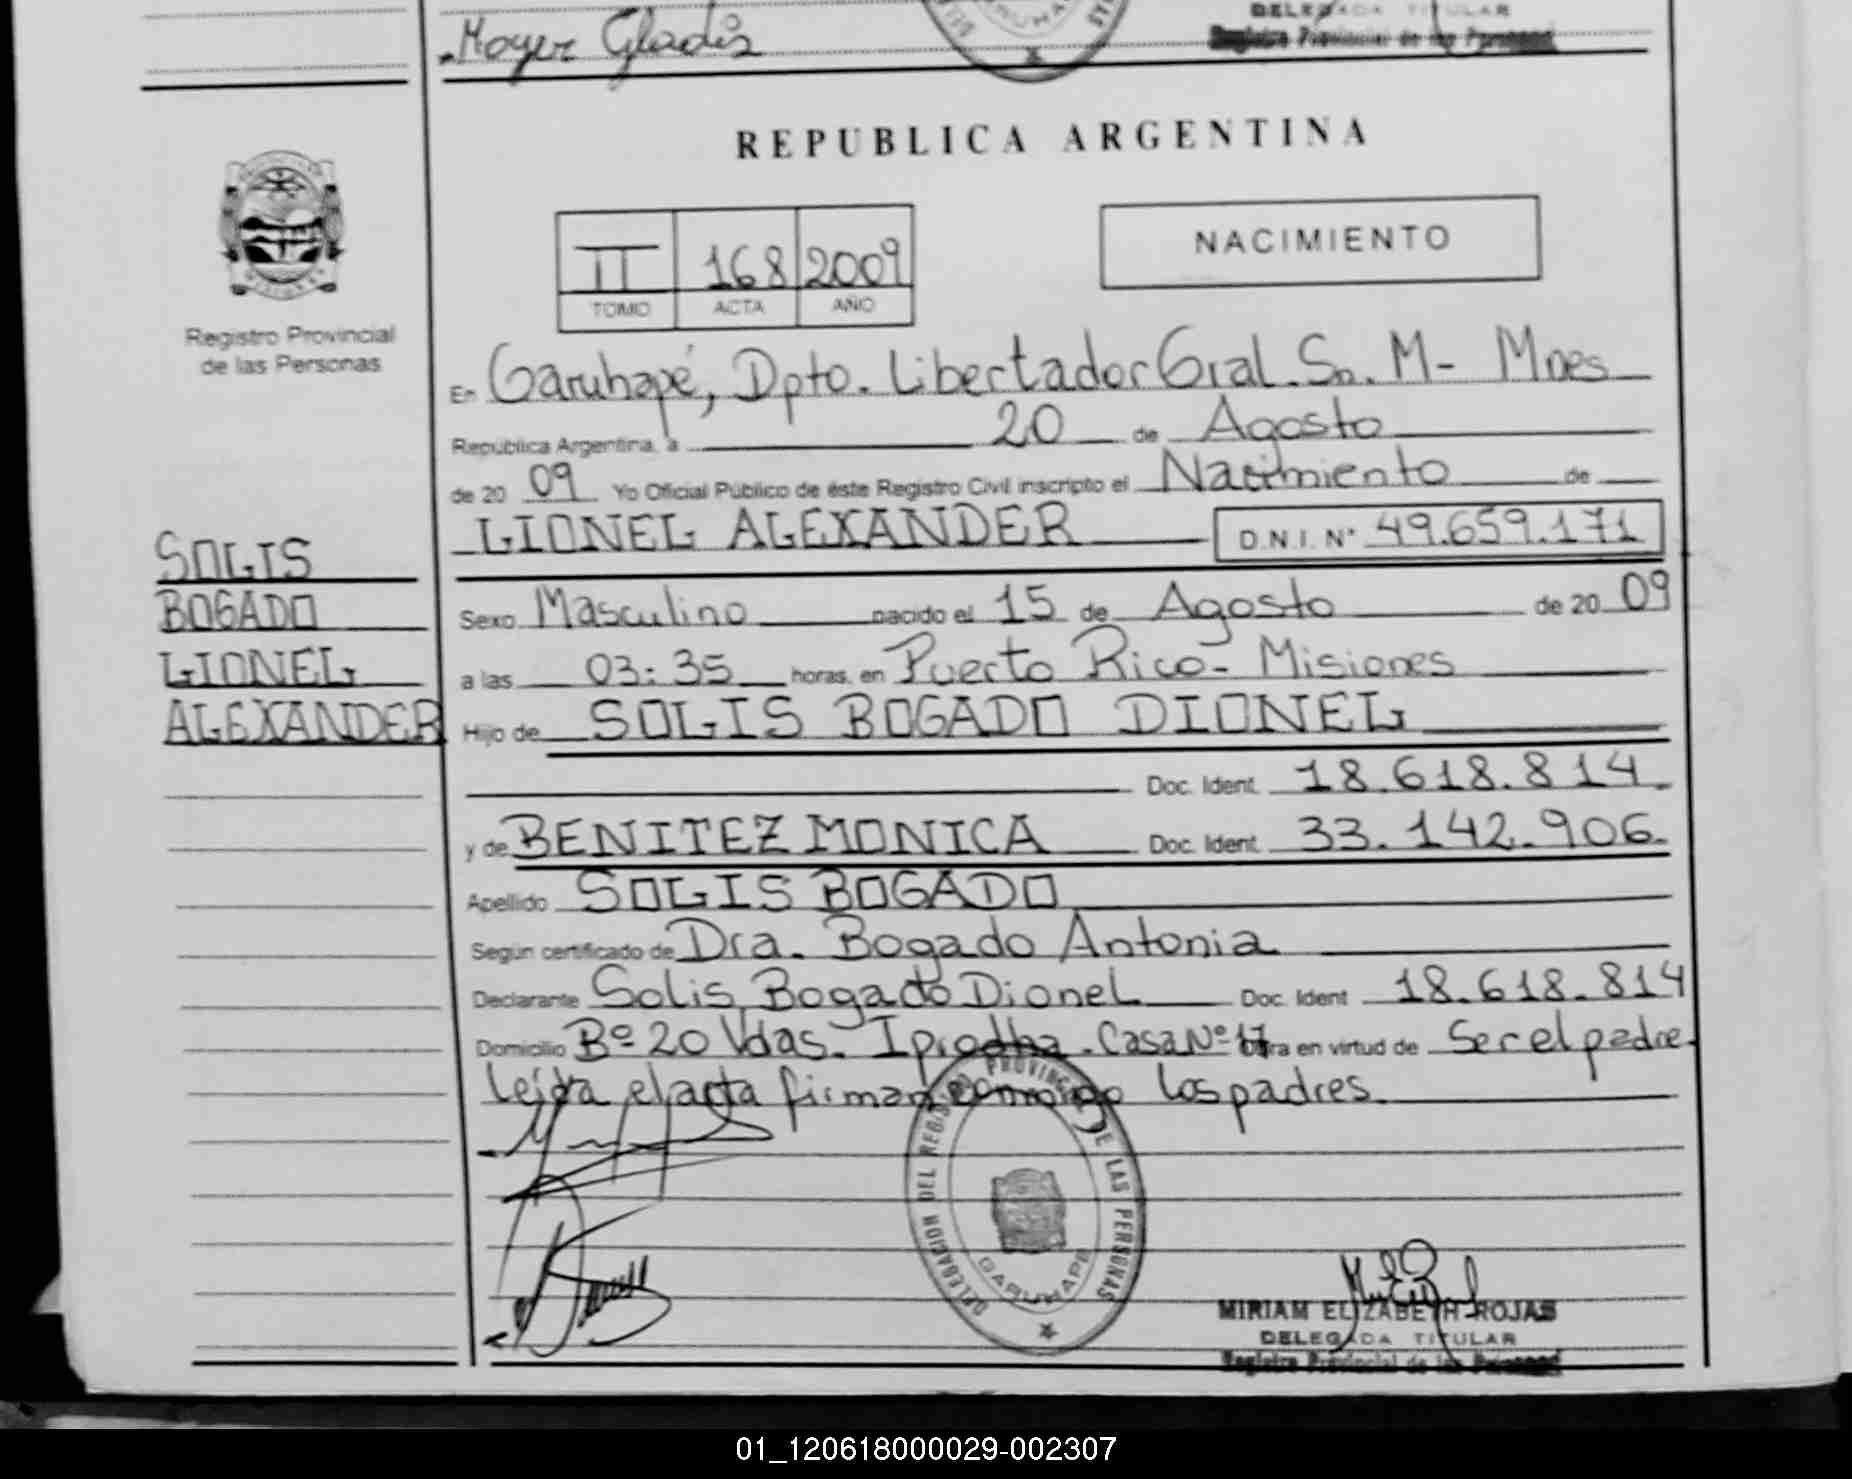 Moyer Gladis
DELEGADA TITULAR
Registro Provincial de las Personas
REPUBLICA ARGENTINA
II 168 2009
TOMO ACTA AÑO
NACIMIENTO
Registro Provincial
de las Personas
En Garuhapé, Dpto. Libertador Gral. Sn. M- Mnes
República Argentina, a 20 de Agosto
de 20 09 Yo Oficial Público de éste Registro Civil inscripto el Nacimiento de
LIONEL ALEXANDER D.N.I. N° 49.659.171
SOLIS
BOGADO
LIONEL
ALEXANDER
Sexo Masculino nacido el 15 de Agosto de 20 09
a las 03:35 horas, en Puerto Rico- Misiones
Hijo de SOLIS BOGADO DIONEL
Doc. Ident. 18.618.814.
y de BENITEZ MONICA Doc. Ident. 33.142.906.
Apellido SOLIS BOGADO
Según certificado de Dra. Bogado Antonia
Declarante Solis Bogado Dionel Doc. Ident. 18.618.814
Domicilio Bº 20 Vdas. Iprodha. Casa Nº 17 Obra en virtud de Ser el padre.
leída el acta firman conmigo los padres.
DELEGACION DEL REGISTRO PROVINCIAL DE LAS PERSONAS
GARUHAPE
MIRIAM ELIZABETH ROJAS
DELEGADA TITULAR
Registro Provincial de las Personas
01_120618000029-002307